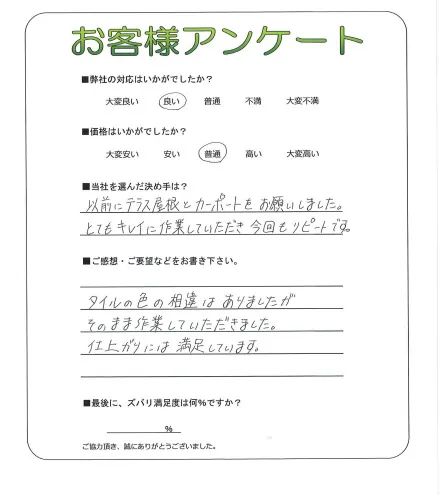 お客様アンケート
■弊社の対応はいかがでしたか？
大変良い 良い 普通 不満 大変不満
■価格はいかがでしたか？
大変安い 安い 普通 高い 大変高い
■当社を選んだ決め手は？
以前にテラス屋根とカーポートをお願いしました。
とてもキレイに作業していただき今回もリピートです。
■ご感想・ご要望などをお書き下さい。
タイルの色の相違はありましたが
そのまま作業していただきました。
仕上がりには満足しています。
■最後に、ズバリ満足度は何%ですか？
%
ご協力頂き、誠にありがとうございました。